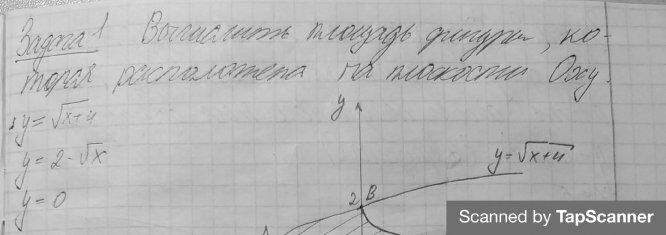 Задача 1 Вычислить площадь фигуры, ко-
торая расположена на плоскости Oxy.
y=√x+4
y
y=2-√x
y=√x+4
y=0
2 B
A
Scanned by TapScanner